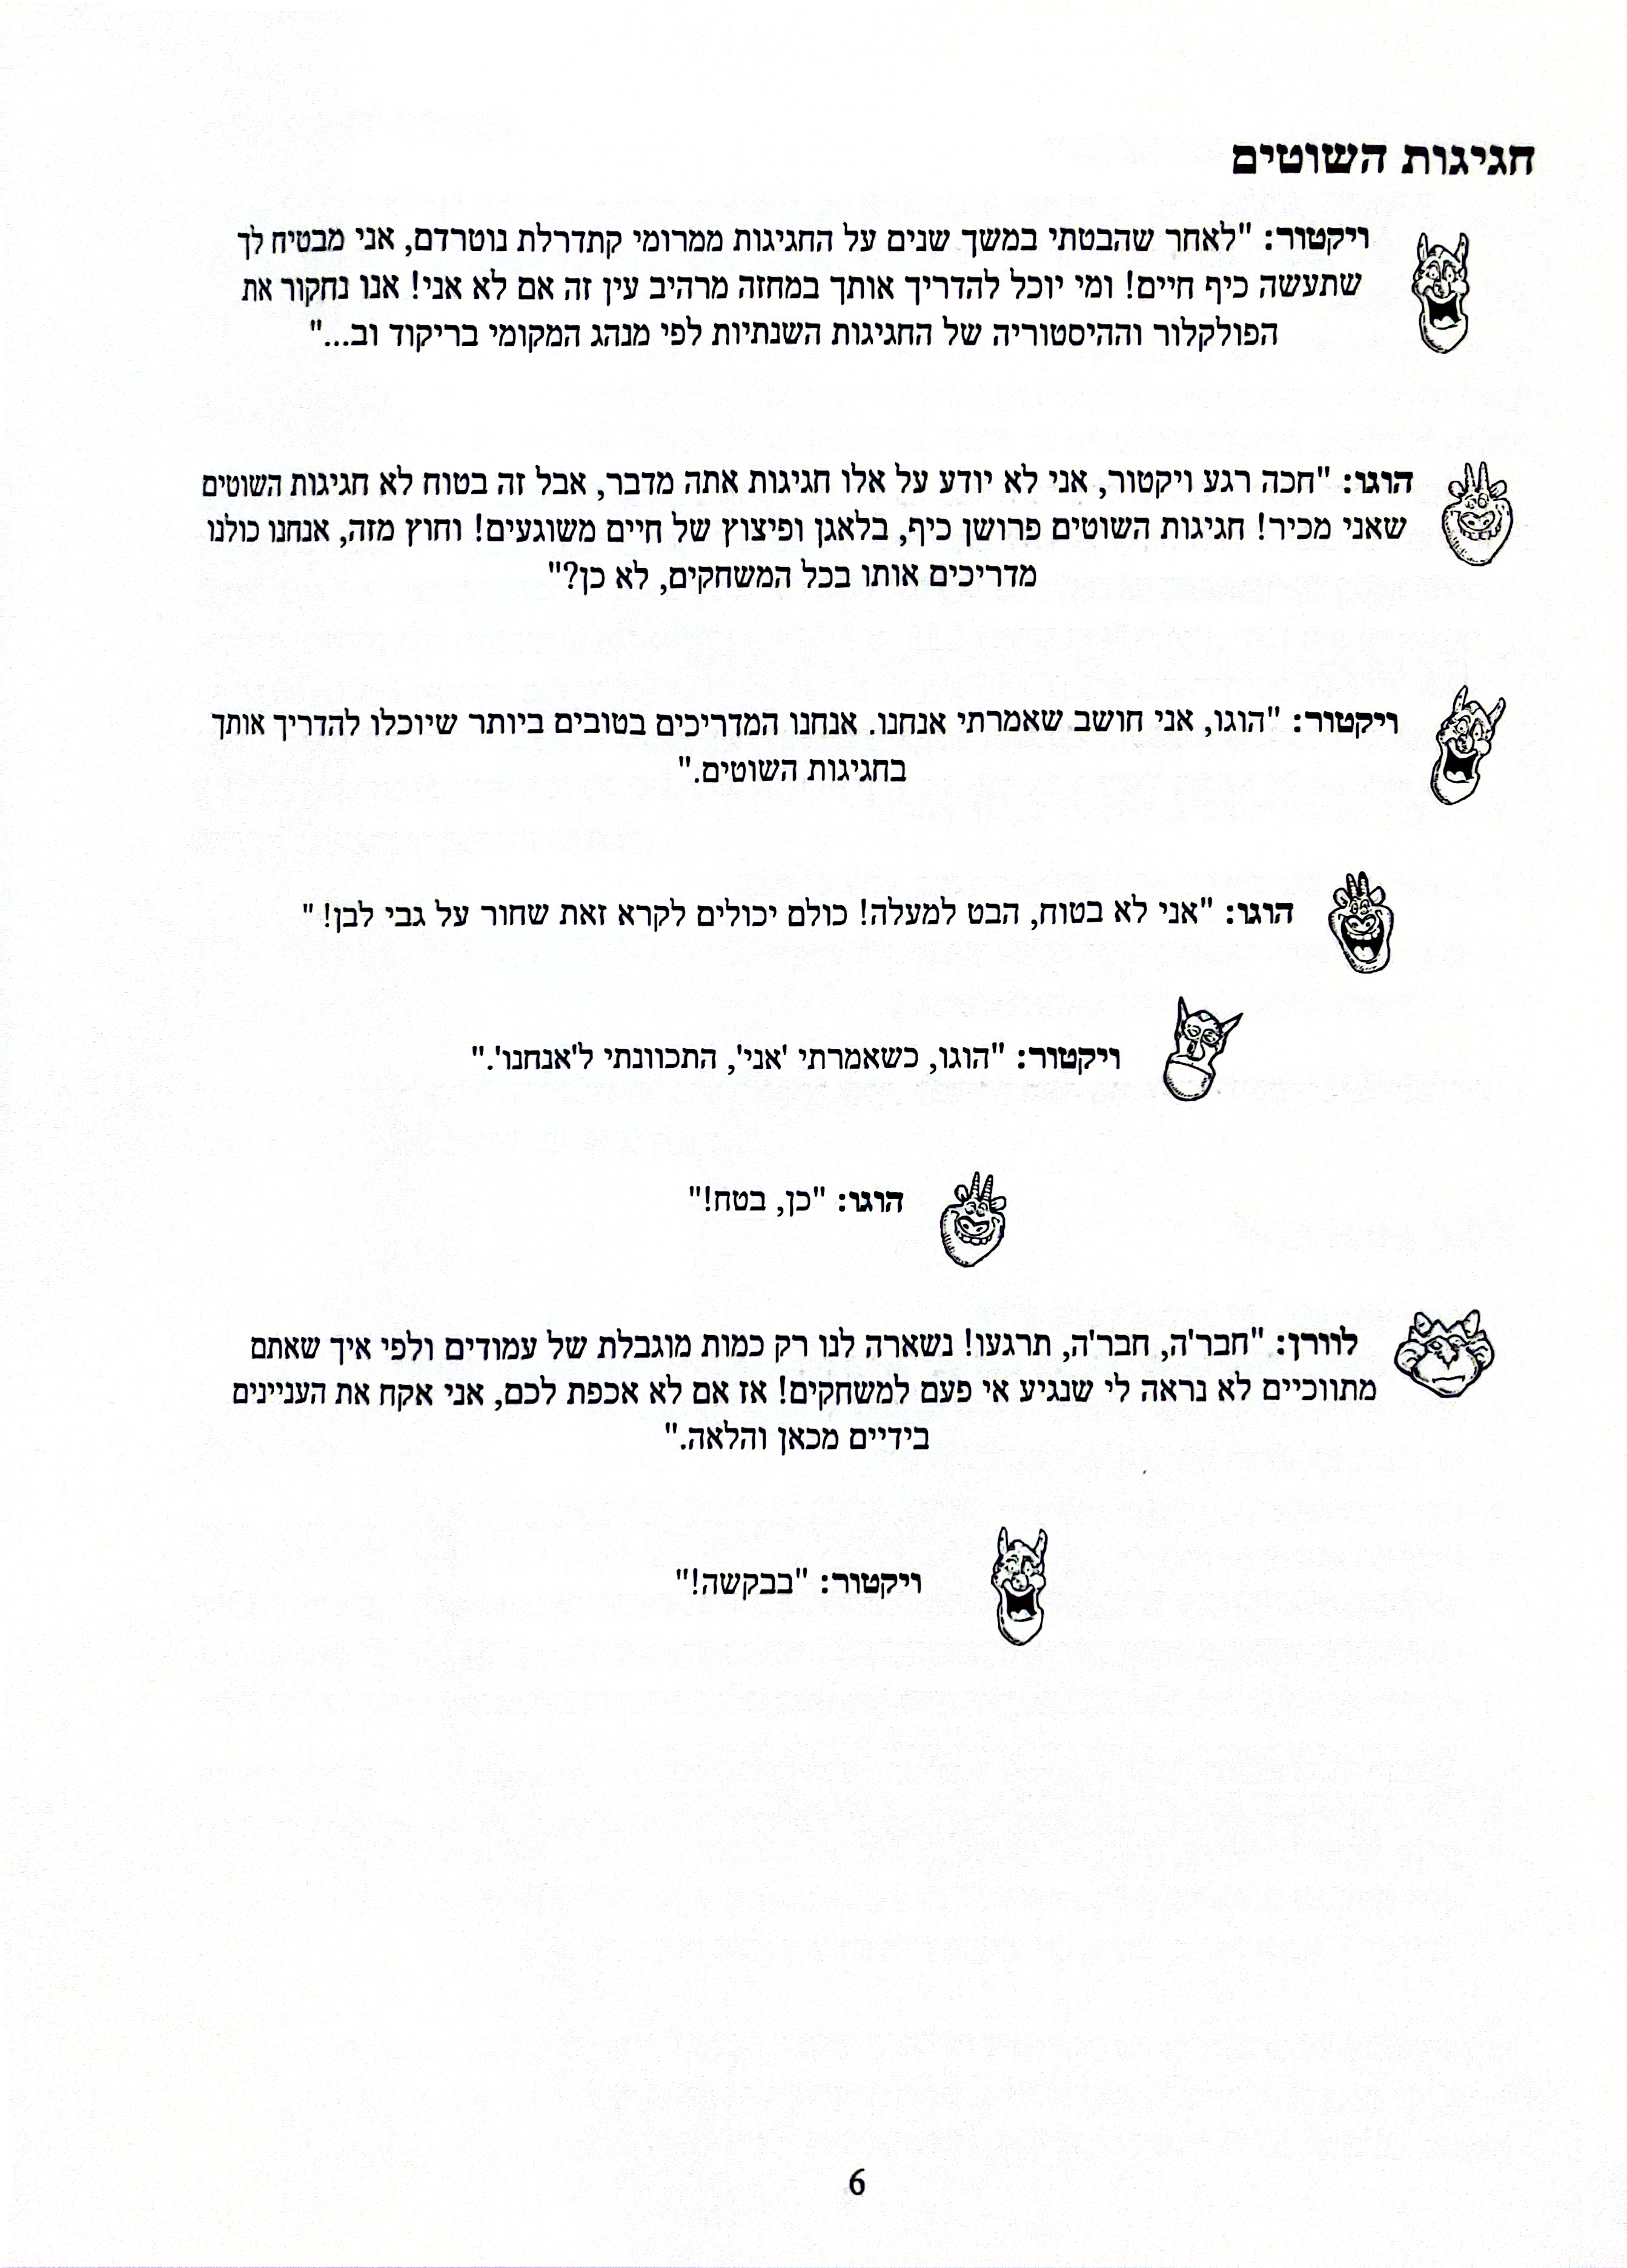 חגיגות השוטים
ויקטור: "לאחר שהבטתי במשך שנים על החגיגות ממרומי קתדרלת נוטרדם, אני מבטיח לך
שתעשה כיף חיים! ומי יוכל להדריך אותך במחזה מרהיב עין זה אם לא אני! אנו נחקור את
הפולקלור וההיסטוריה של החגיגות השנתיות לפי מנהג המקומי בריקוד וב..."
הוגו: "חכה רגע ויקטור, אני לא יודע על אלו חגיגות אתה מדבר, אבל זה בטוח לא חגיגות השוטים
שאני מכיר! חגיגות השוטים פרושן כיף, בלאגן ופיצוץ של חיים משוגעים! וחוץ מזה, אנחנו כולנו
מדריכים אותו בכל המשחקים, לא כן?"
ויקטור: "הוגו, אני חושב שאמרתי אנחנו. אנחנו המדריכים בטובים ביותר שיוכלו להדריך אותך
בחגיגות השוטים."
הוגו: "אני לא בטוח, הבט למעלה! כולם יכולים לקרא זאת שחור על גבי לבן! "
ויקטור: "הוגו, כשאמרתי 'אני', התכוונתי ל'אנחנו'."
הוגו: "כן, בטח!"
לוורן: "חבר'ה, חבר'ה, תרגעו! נשארה לנו רק כמות מוגבלת של עמודים ולפי איך שאתם
מתווכיים לא נראה לי שנגיע אי פעם למשחקים! אז אם לא אכפת לכם, אני אקח את העניינים
בידיים מכאן והלאה."
ויקטור: "בבקשה!"
6